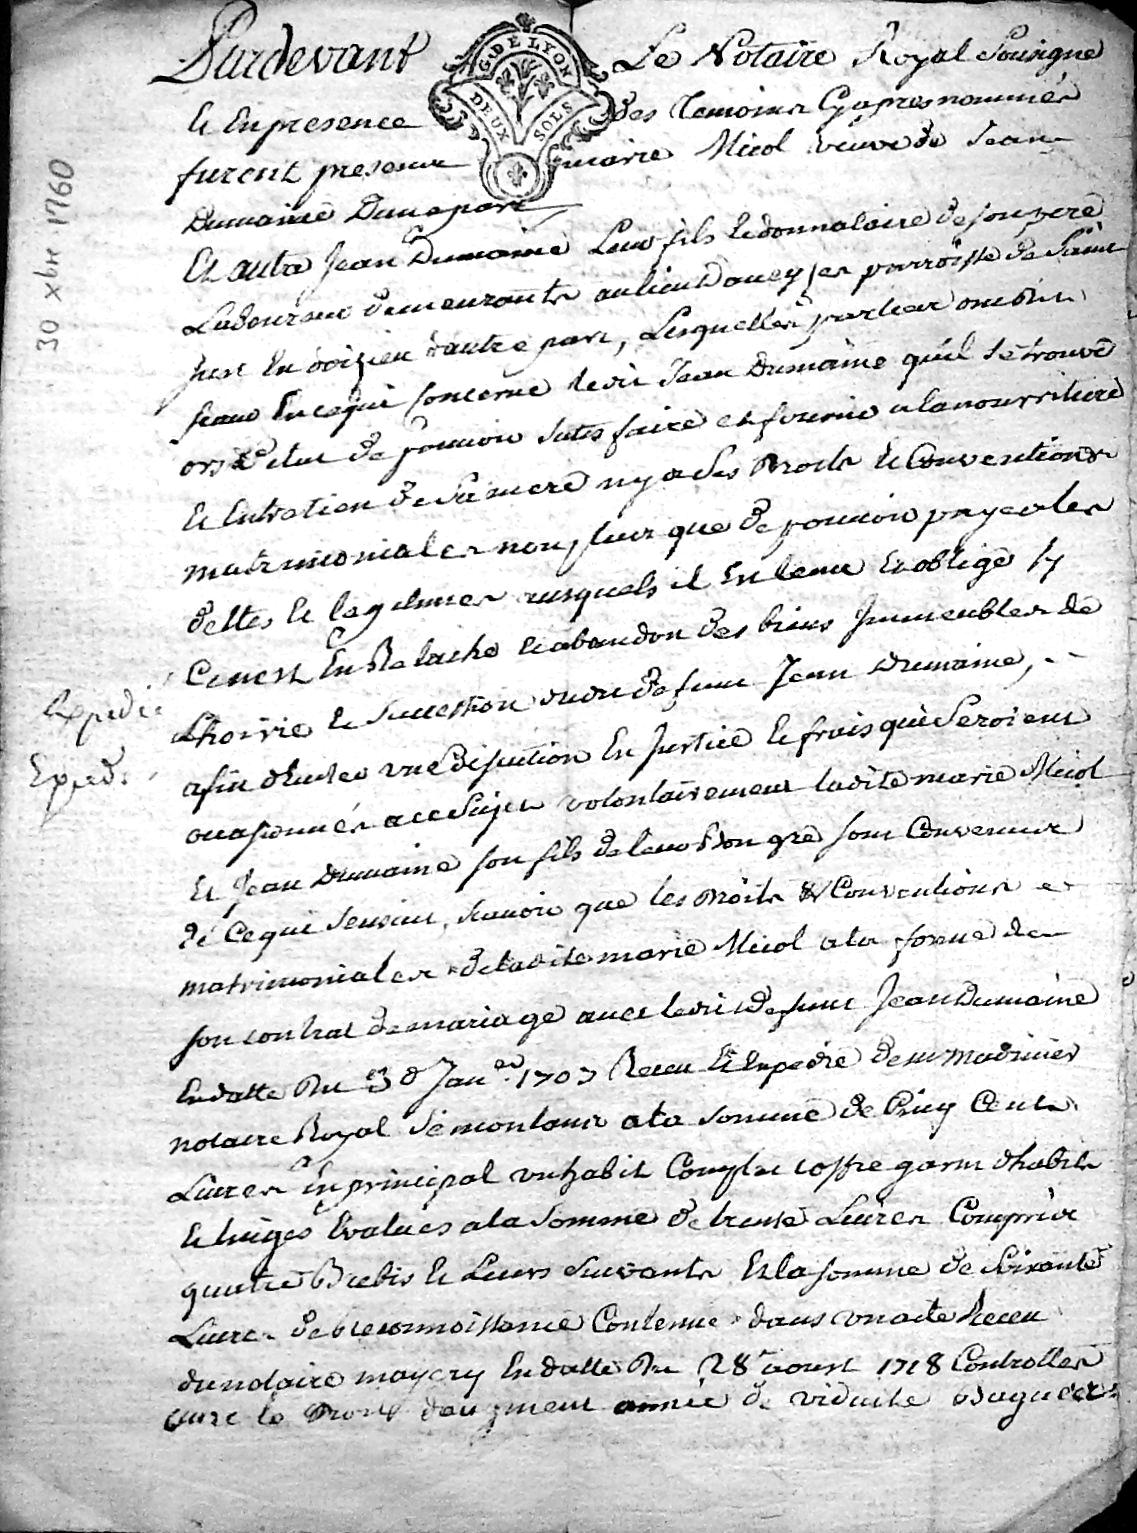 30 xbre 1760
G. DE LYON
DEUX SOLS
Pardevant Le Notaire Royal Sousigné
Et En presence des Temoins Cy apres nommés
furent presents marie Nicol veuve de Jean
Dumaine D'une part
Et autre Jean Dumaine Leur fils Et donnataire de son pere
Laboureur demeurants au lieu parroisse de Saint
Just En doizieu d'autre part, Lesquelles parties ont dit
scavoir En ce qui Concerne ledit Jean Dumaine qu'il se trouve
ors d'etat de pouvoir satisfaire et fournir a la nourriture
Et Entretien de Sa mere ny a Ses Droits Et Conventions
matrimoniales non plus que de pouvoir payer les
dettes Et legitimes ausquels il En tenu Et obligé sy
Ce n'est En Relache Et abandon des biens Immeubles de
L'hoirie Et Succession dudit defunt Jean Dumaine,
Expedié
Exped.
afin d'Eviter une discution En Justice Et frais qui Seroient
occasionnés a ce Sujet volontairement ladite marie Nicol
Et Jean Dumaine son fils de leur bon gré sont Convenus
de Ce qui Sensuit, scavoir que les Droits & Conventions
matrimoniales de ladite marie Nicol a la forme de
son contrat de mariage avec ledit defunt Jean Dumaine
En datte Du 3 Janer 1707 Receu Et Expedié de me
notaire Royal Se montant a la somme de Cinq Cents
Livres En principal un habit Complet coffre garni d'habits
Et linges Evalués a la Somme de trente Livres Compris
quatre Brebis Et Leurs Suivants Et la somme de Soixante
Livres de reconnoissance Contenue dans un acte Receu
du notaire mayery En datte Du 28e aoust 1718 Controllés
outre le Droit d'augment année de viduité bagues